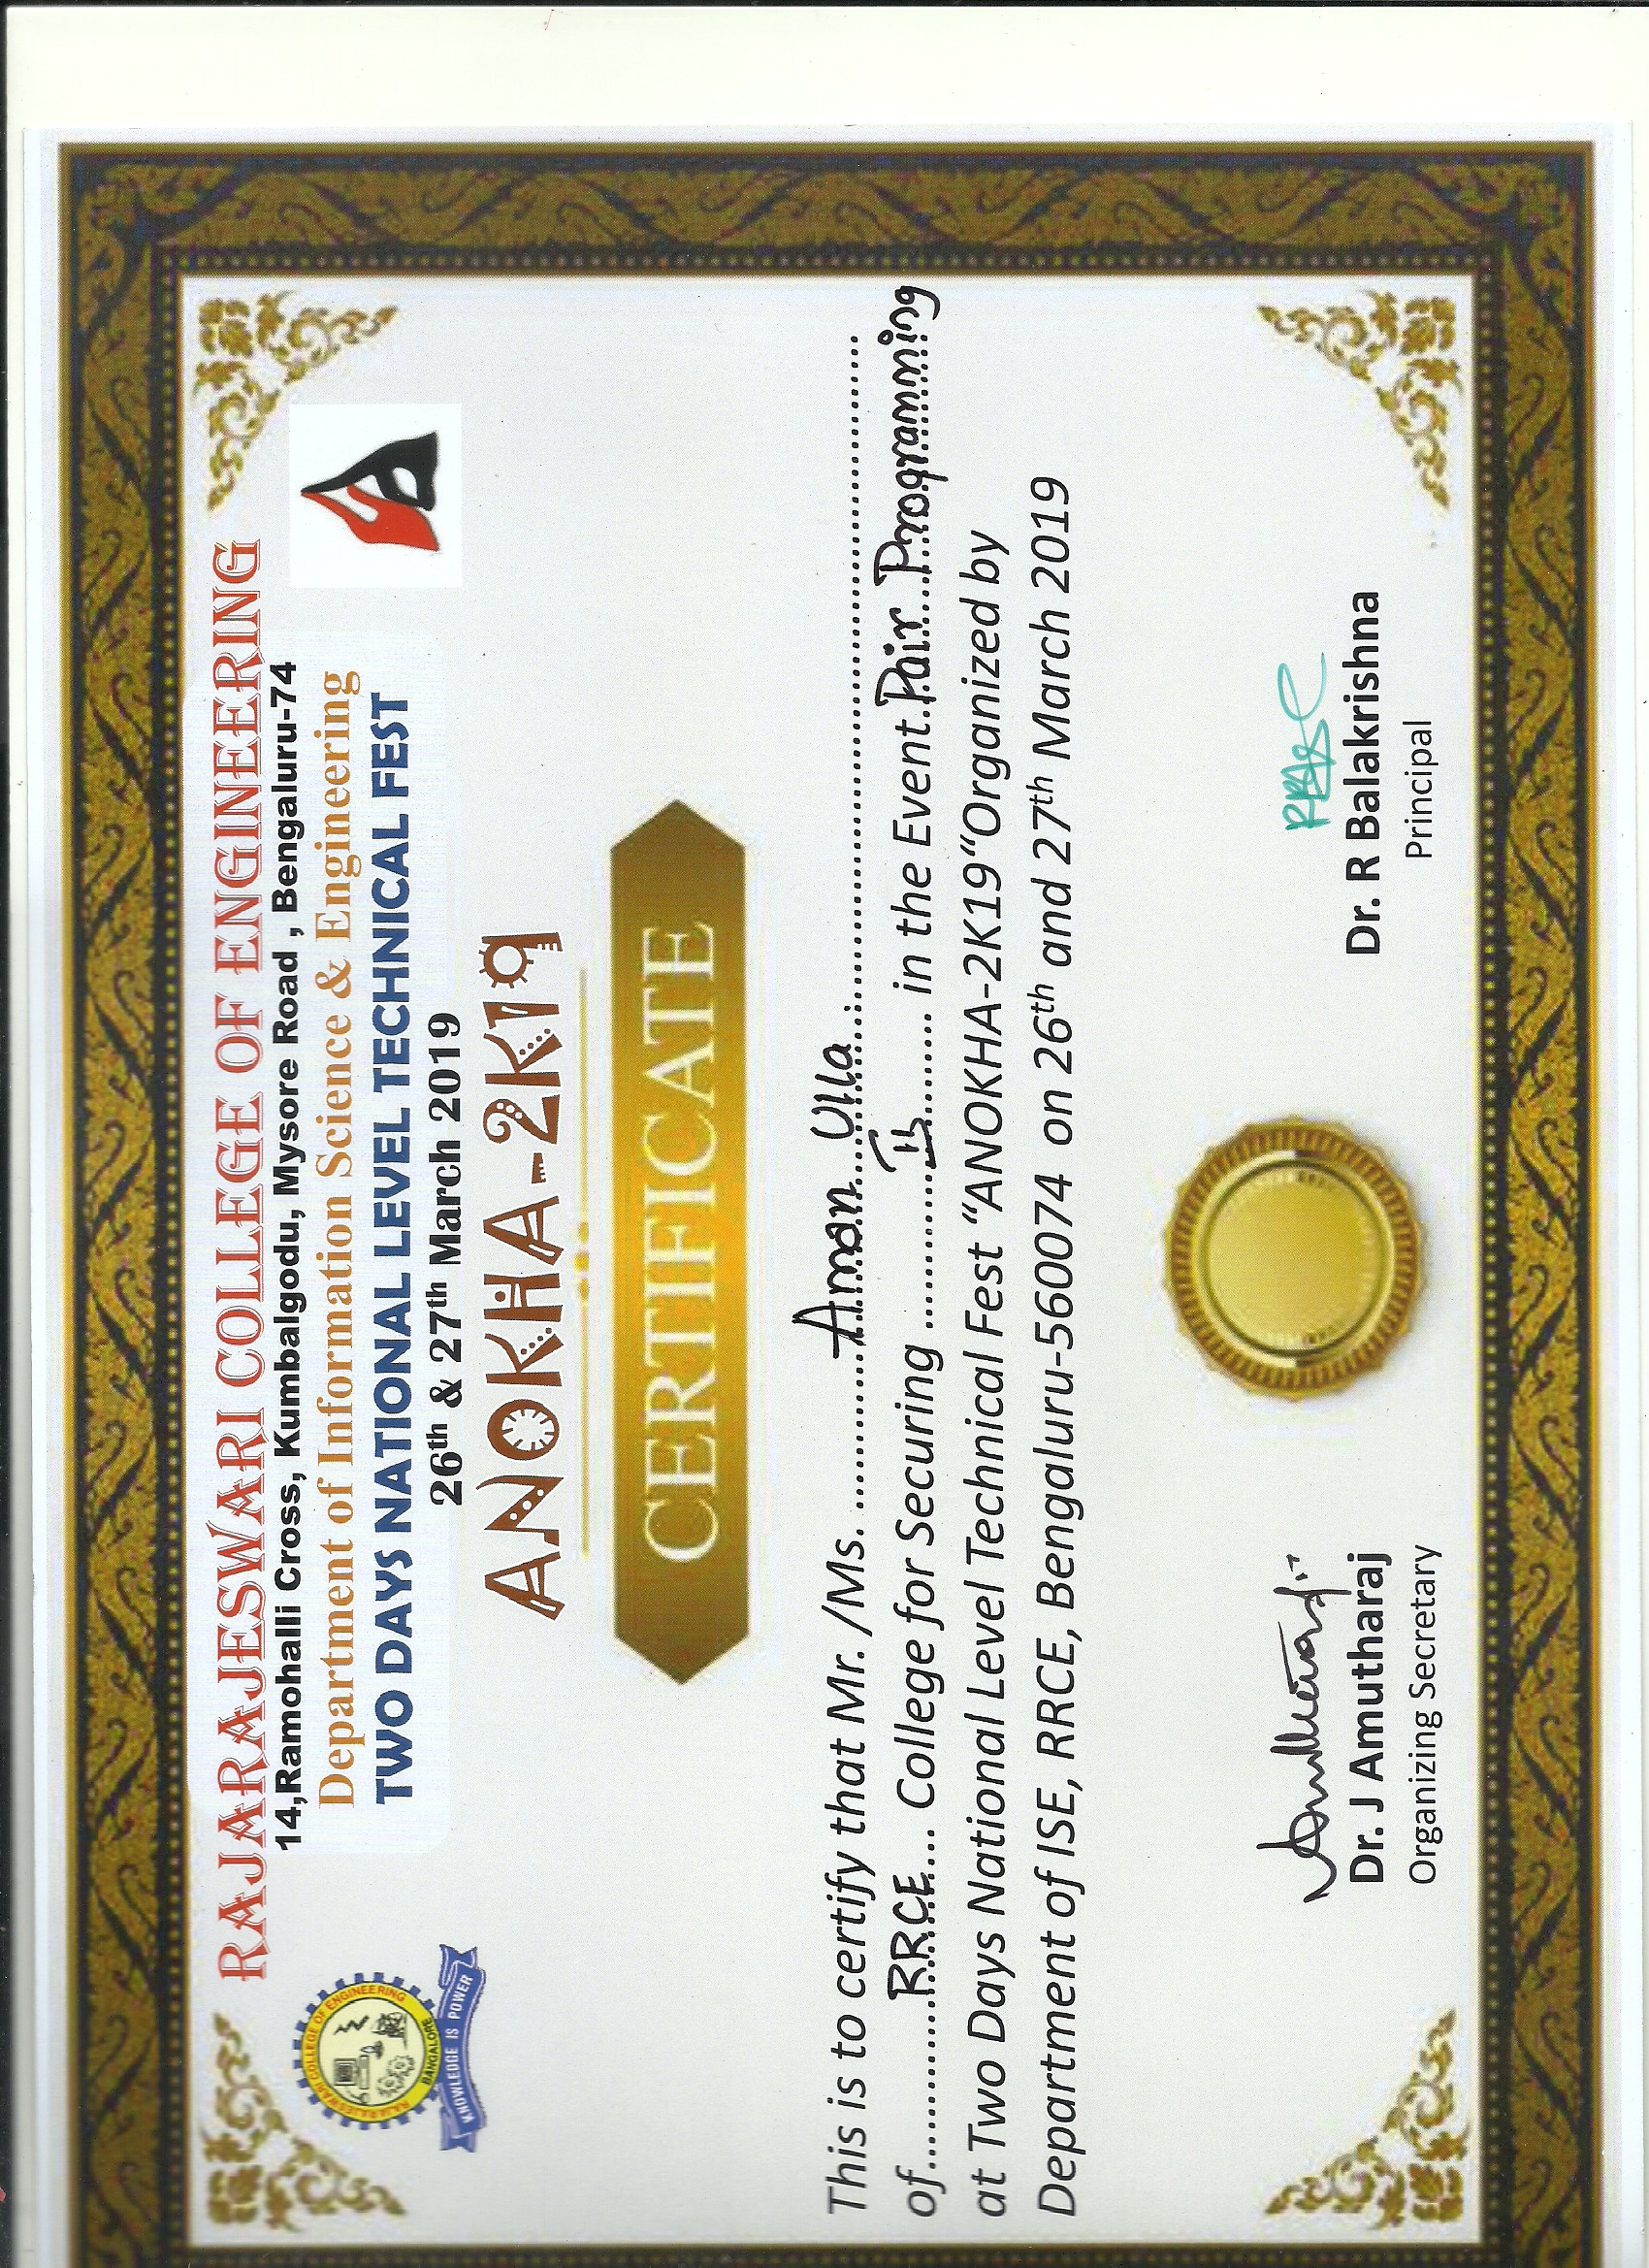 RAJARAJESWARI COLLEGE OF ENGINEERING
14,Ramohalli Cross, Kumbalgodu, Mysore Road , Bengaluru-74
Department of Information Science & Engineering
TWO DAYS NATIONAL LEVEL TECHNICAL FEST
26th & 27th March 2019
RAJARAJESWARI COLLEGE OF ENGINEERING
BANGALORE
KNOWLEDGE IS POWER
ANOKHA-2K19
CERTIFICATE
This is to certify that Mr. /Ms. ............Aman Ulla..................................................
of.............RRCE.... College for Securing ............II......... in the Event.Pair Programming
at Two Days National Level Technical Fest “ANOKHA-2K19“Organized by
Department of ISE, RRCE, Bengaluru-560074 on 26th and 27th March 2019
Dr. J Amutharaj
Organizing Secretary
Dr. R Balakrishna
Principal